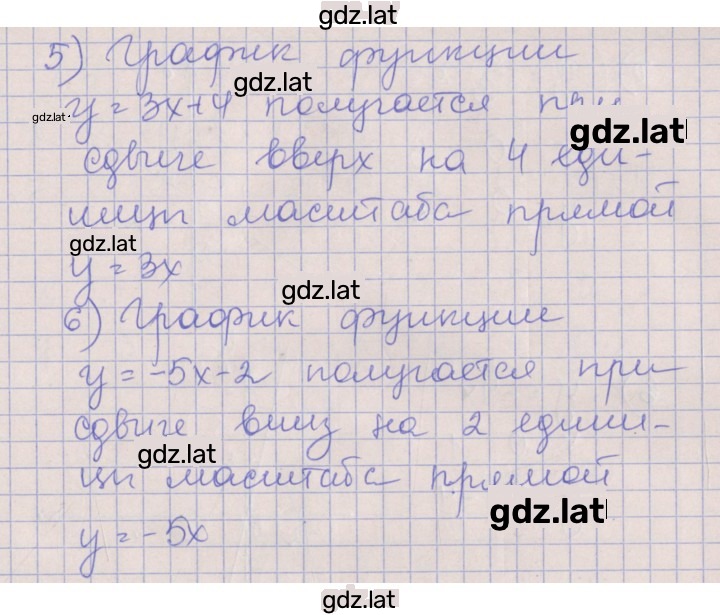 gdz.lat
5) График функции
gdz.lat
gdz.lat
y = 3x+4 получается при
gdz.lat
сдвиге вверх на 4 еди-
ницы масштаба прямой
gdz.lat
y = 3x
gdz.lat
6) График функции
y = -5x-2 получается при
сдвиге вниз на 2 едини-
gdz.lat
цы масштаба прямой
gdz.lat
y = -5x
gdz.lat